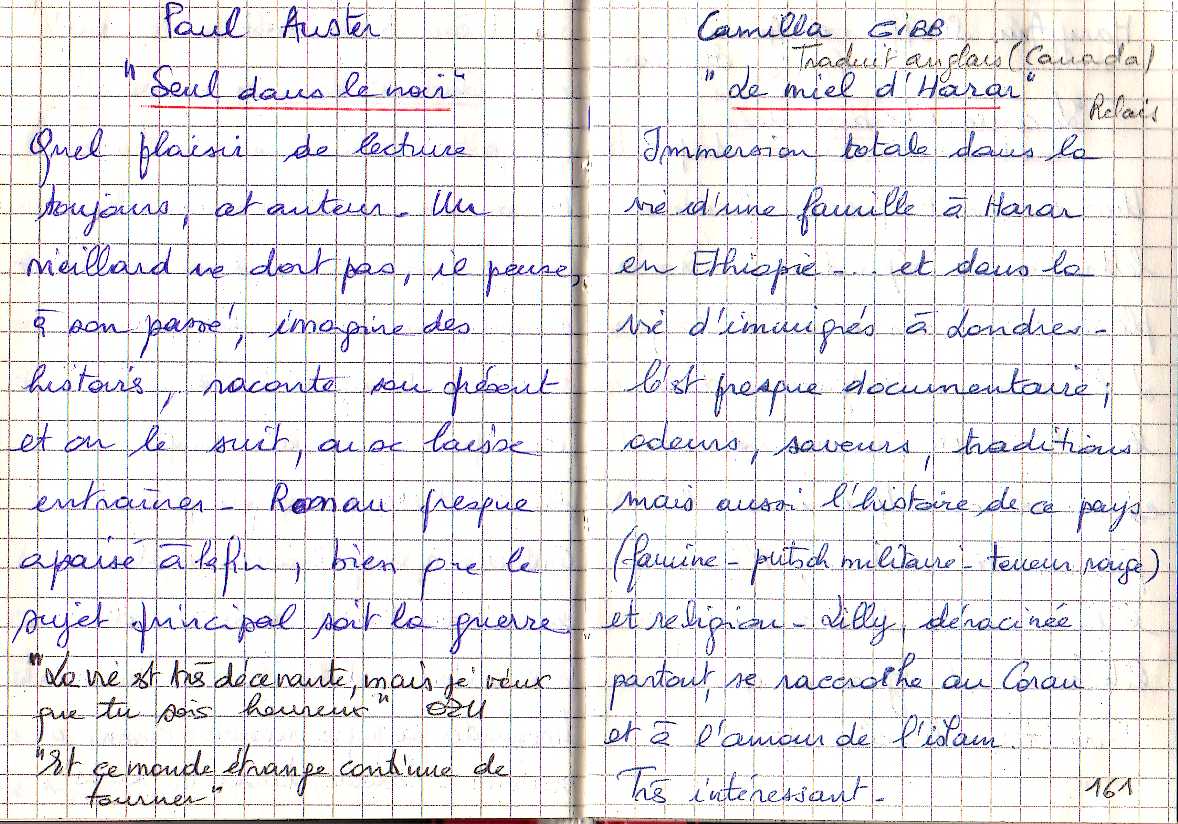 Paul Auster
"Seul dans le noir"
Quel plaisir de lecture
toujours, cet auteur - Un
vieillard ne dort pas, il pense
à son passé, imagine des
histoires, raconte son présent
et on le suit, on se laisse
entraîner - Roman presque
apaisé à la fin, bien que le
sujet principal soit la guerre
"La vie est très décevante, mais je veux
que tu sois heureux" OZU
"Et ce monde étrange continue de
tourner"
Camilla GIBB
Traduit anglais (Canada)
"Le miel d'Harar"
Relais
Immersion totale dans la
vie d'une famille à Harar
en Ethiopie - .. et dans la
vie d'immigrés à Londres -
C'est presque documentaire ;
odeurs, saveurs, traditions
mais aussi l'histoire de ce pays
(famine - putsch militaire - terreur rouge)
et religion - Lilly, déracinée
partout, se raccroche au Coran
et à l'amour de l'islam.
Très intéressant -
161